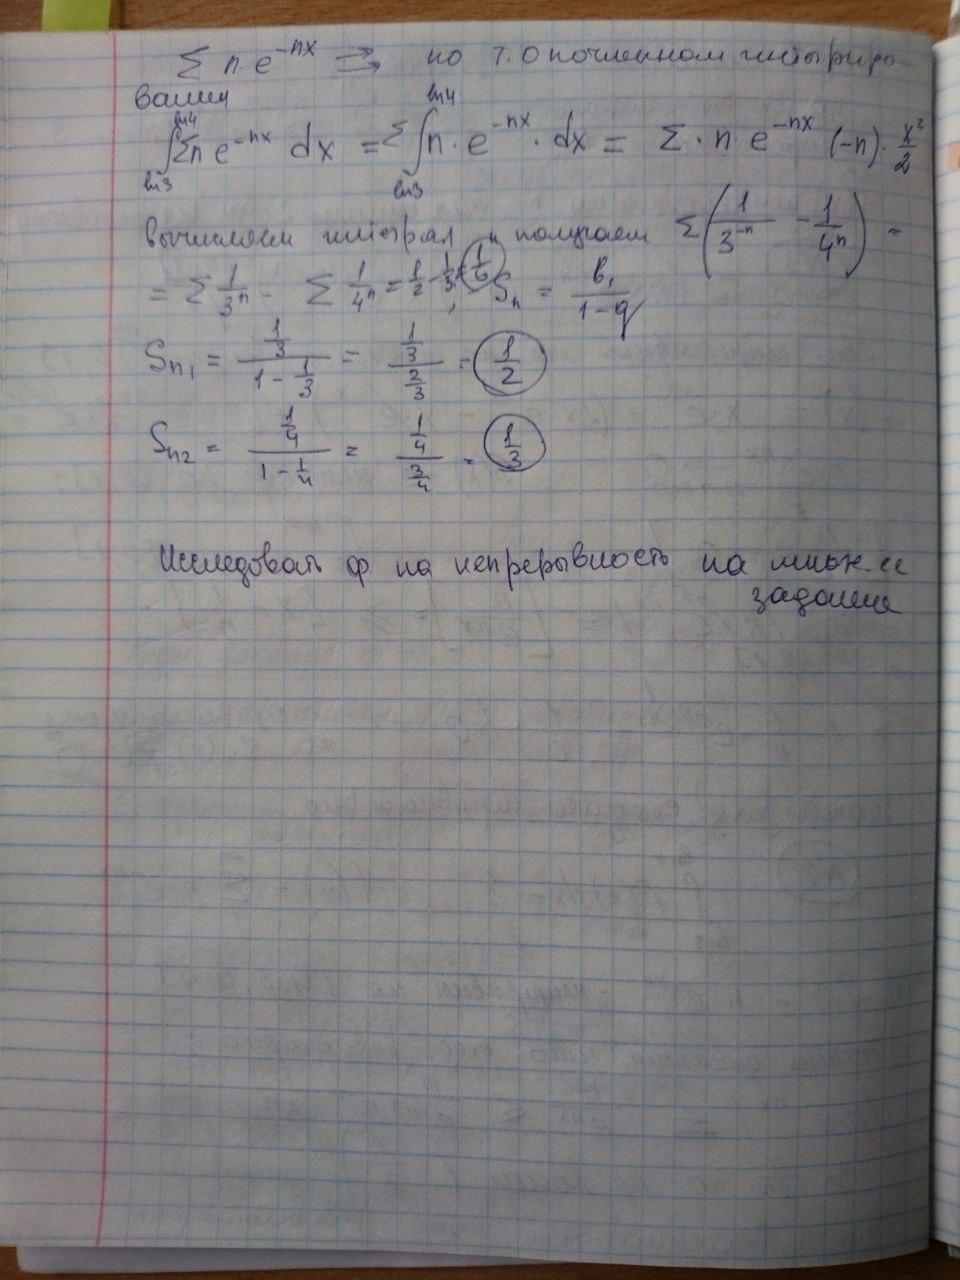 Σ n·e^{-nx} ⇉ по т. о почленном интегриро-
вании
∫_{ln3}^{ln4} Σ n e^{-nx} dx = Σ ∫_{ln3}^{ln4} n·e^{-nx}·dx = Σ·n·e^{-nx} (-n)·x²/2
вычисляем интеграл и получаем Σ(1/3^{-n} - 1/4^n) =
= Σ 1/3^n - Σ 1/4^n = 1/2 - 1/3 = 1/6 ; S_n = b₁/(1-q)
S_{n1} = (1/3)/(1 - 1/3) = (1/3)/(2/3) = 1/2
S_{n2} = (1/4)/(1 - 1/4) = (1/4)/(3/4) = 1/3
Исследовать ф на непрерывность на множ. ее
задания